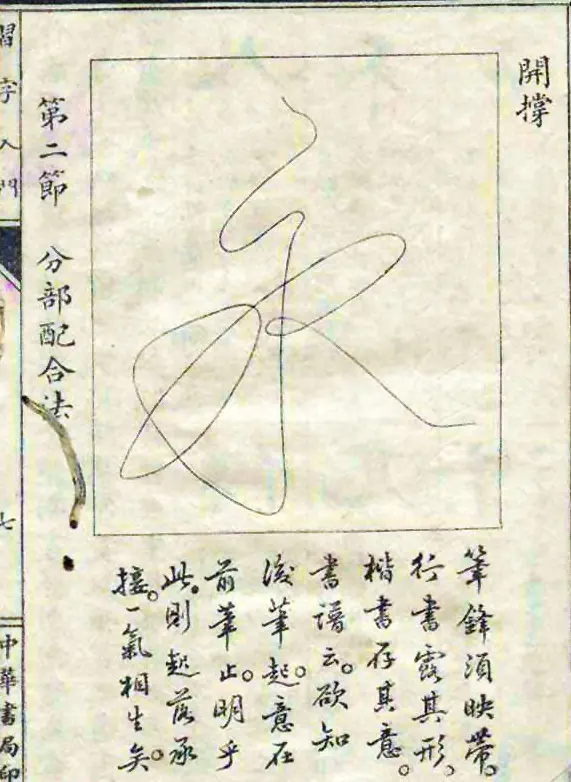 開撐
筆鋒須映帶。
行書露其形。
楷書存其意。
書譜云。欲知
後筆起。意在
前筆止。明乎
此。則起落承
接。一氣相生矣。
第二節 分部配合法
習字入門
七
中華書局印